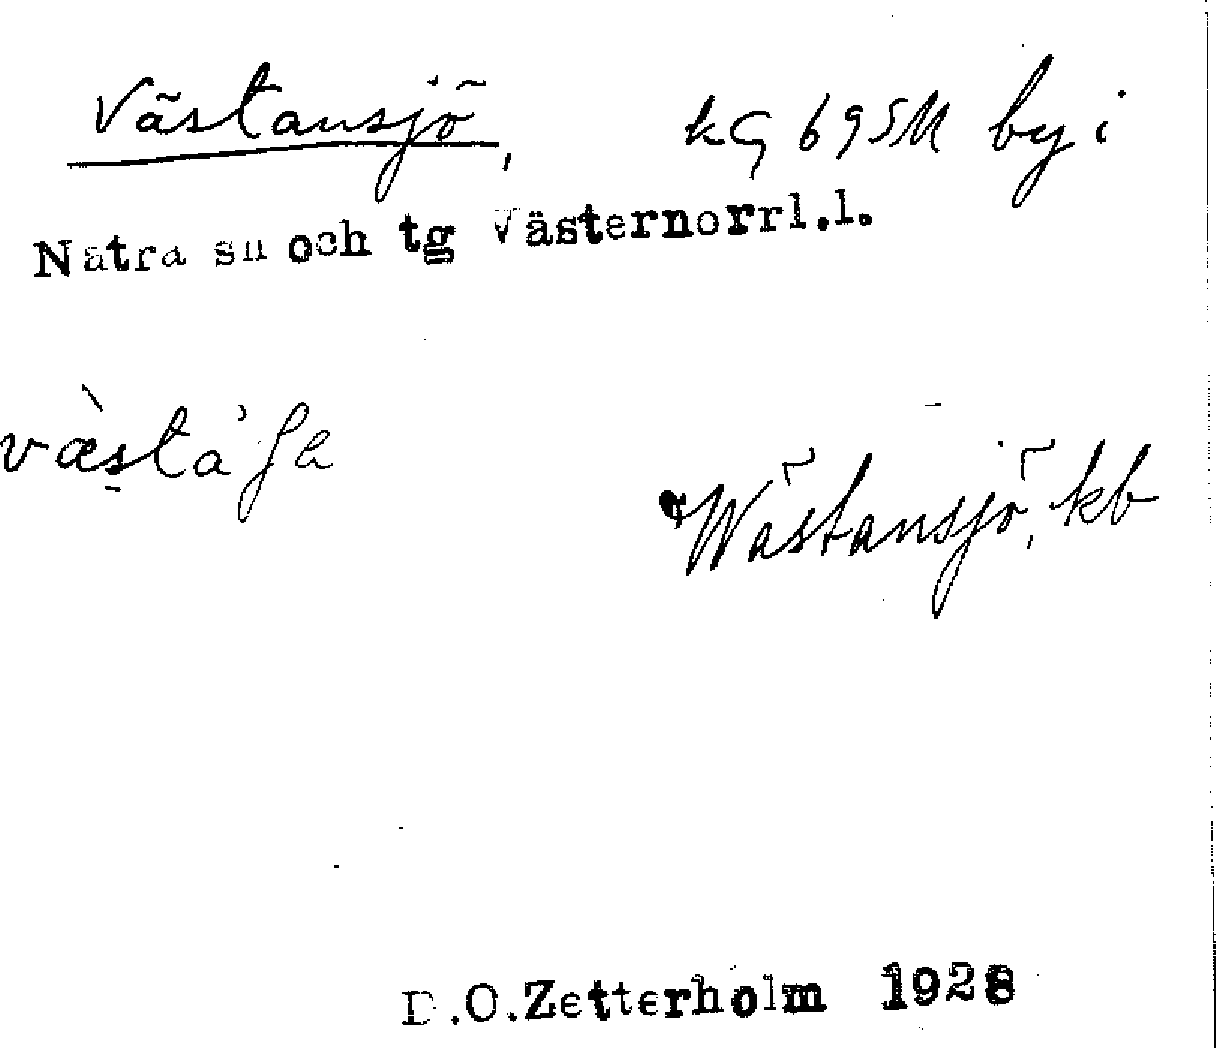 Västansjö, by i
Nätra sn och tg Västernorrl.l.
Wästansjö, kb
D.O.Zetterholm 1928